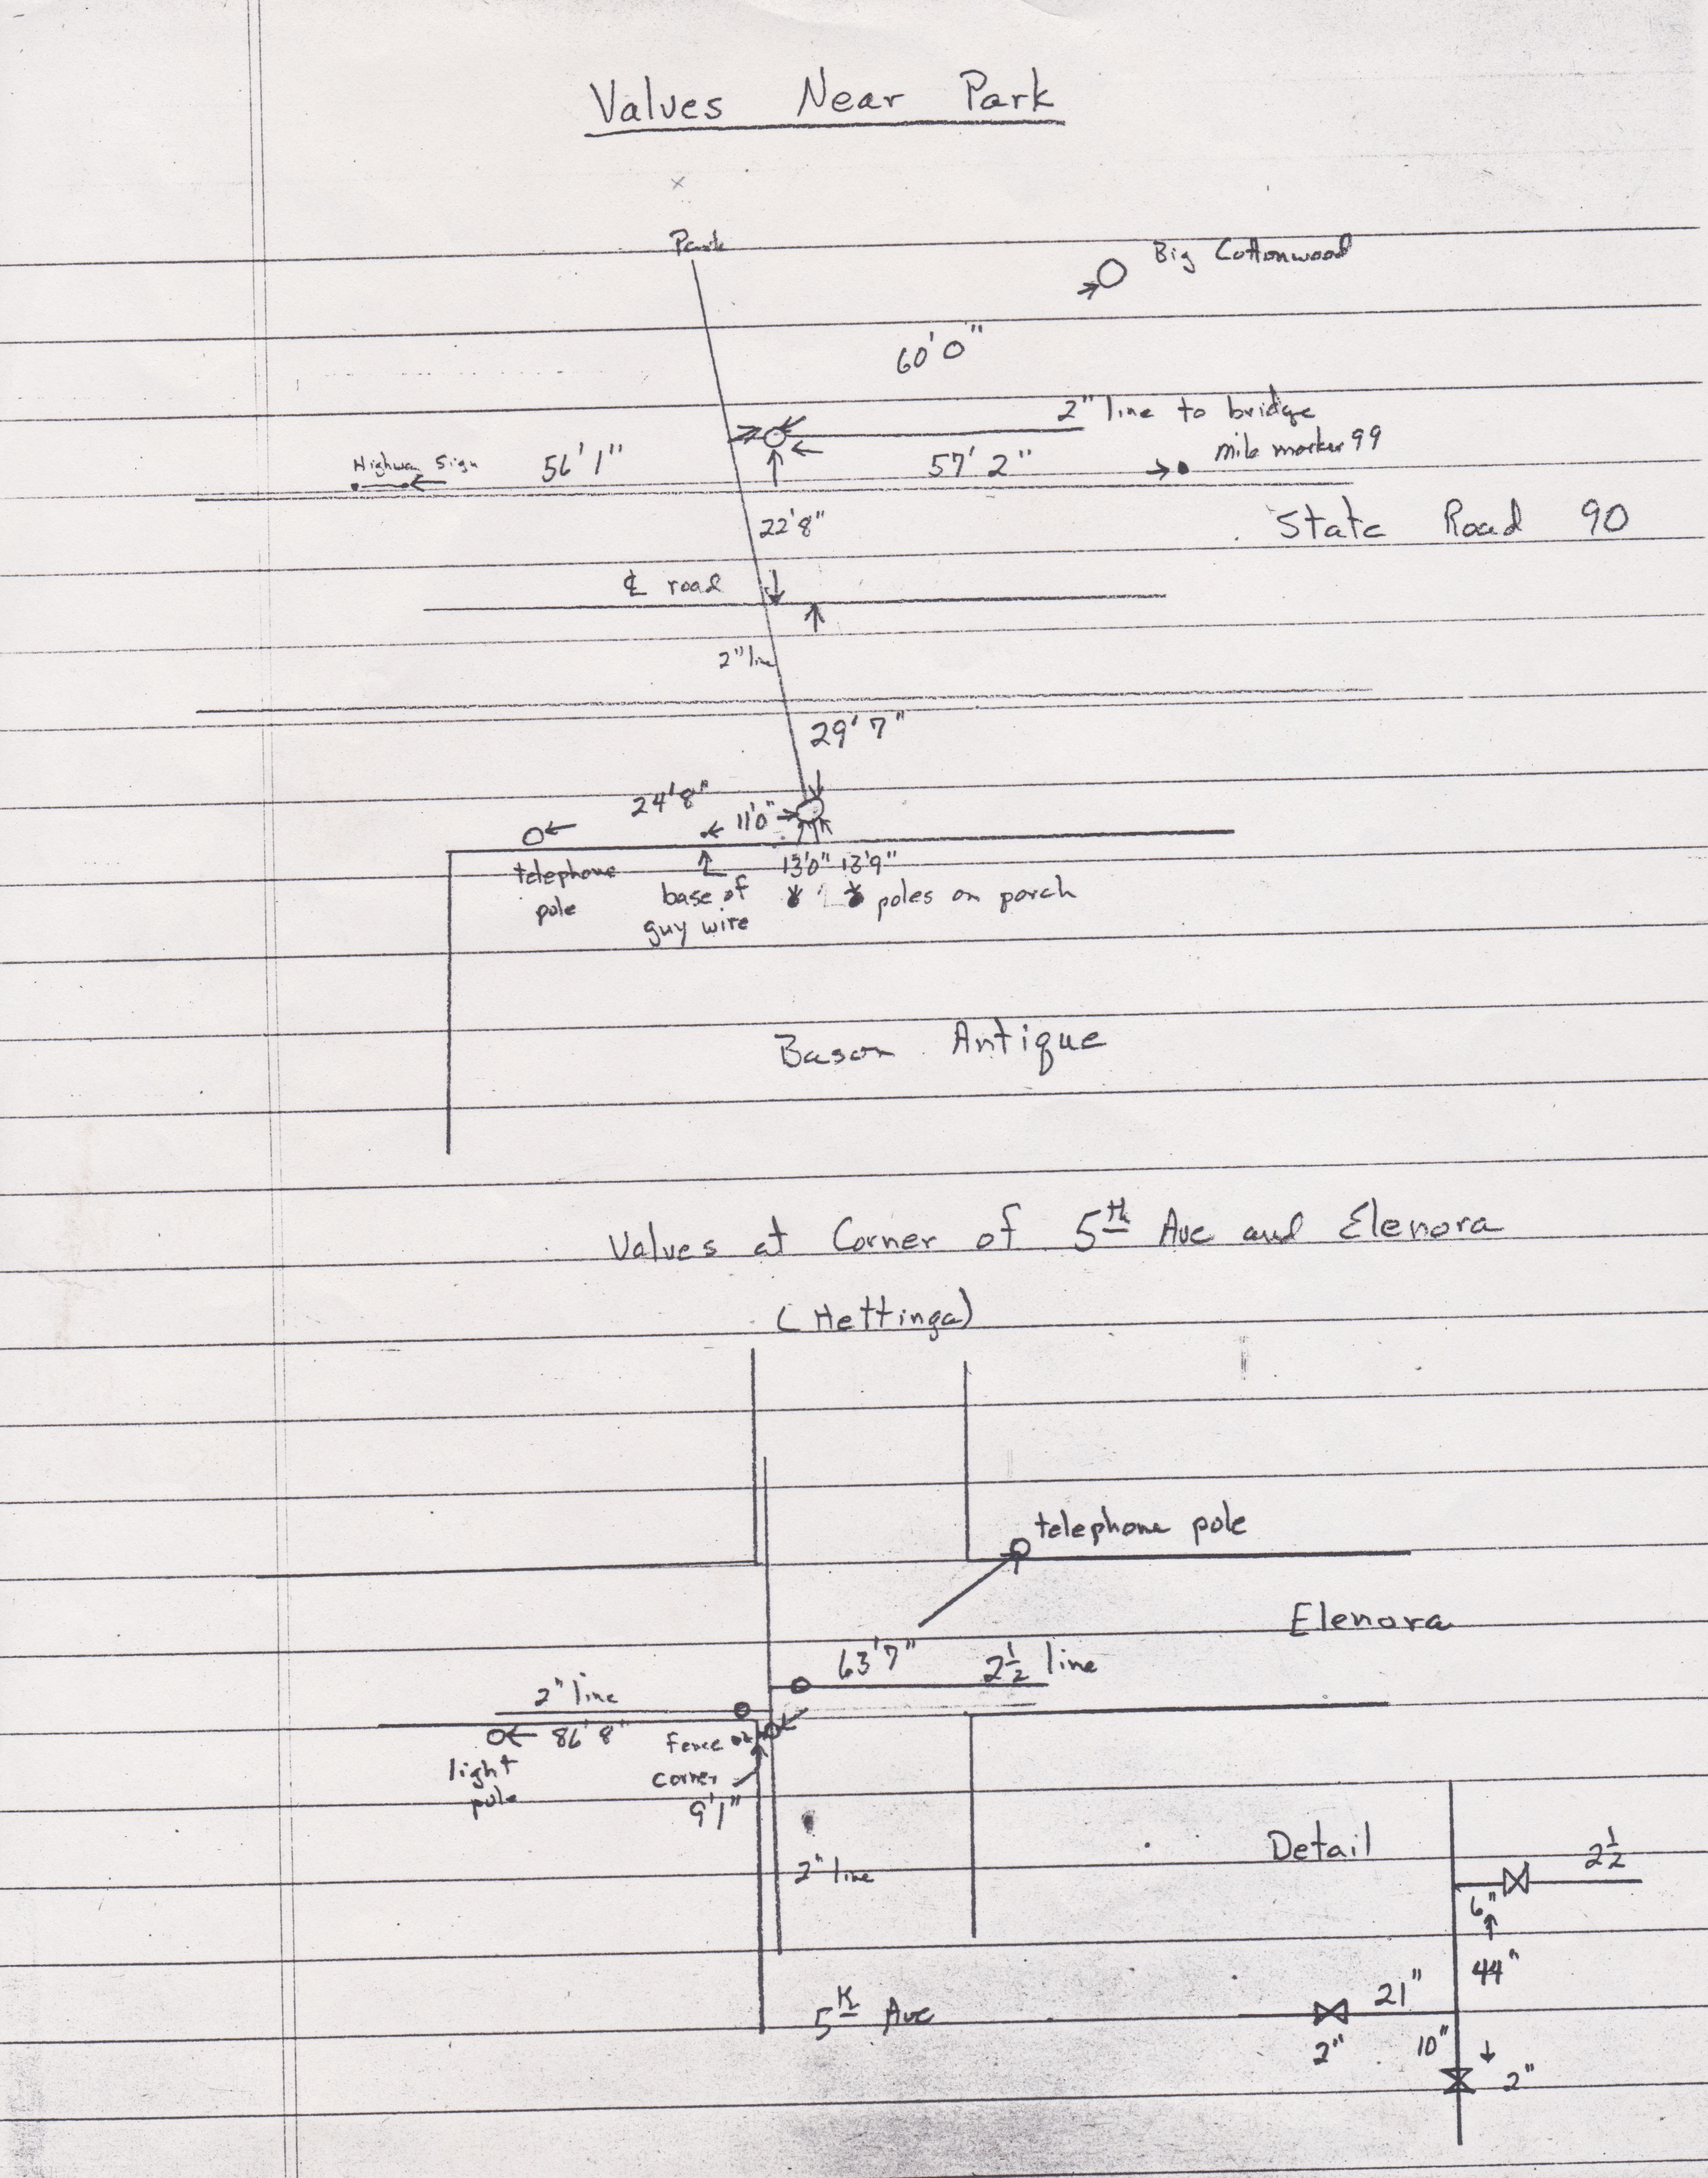 Valves Near Park
Park
Big Cottonwood
60'0"
2" line to bridge
mile marker 99
Highway Sign
56'1"
57'2"
22'8"
State Road 90
℄ road
2" line
29'7"
24'8"
11'0"
telephone pole
base of guy wire
13'0" 13'9"
poles on porch
Bason Antique
Valves at Corner of 5th Ave and Elenora
(Hettinga)
telephone pole
Elenora
63'7"
2½ line
2" line
86'8"
fence corner
light pole
9'1"
2" line
Detail
2½
6"
44"
21"
5th Ave
2"
10"
2"